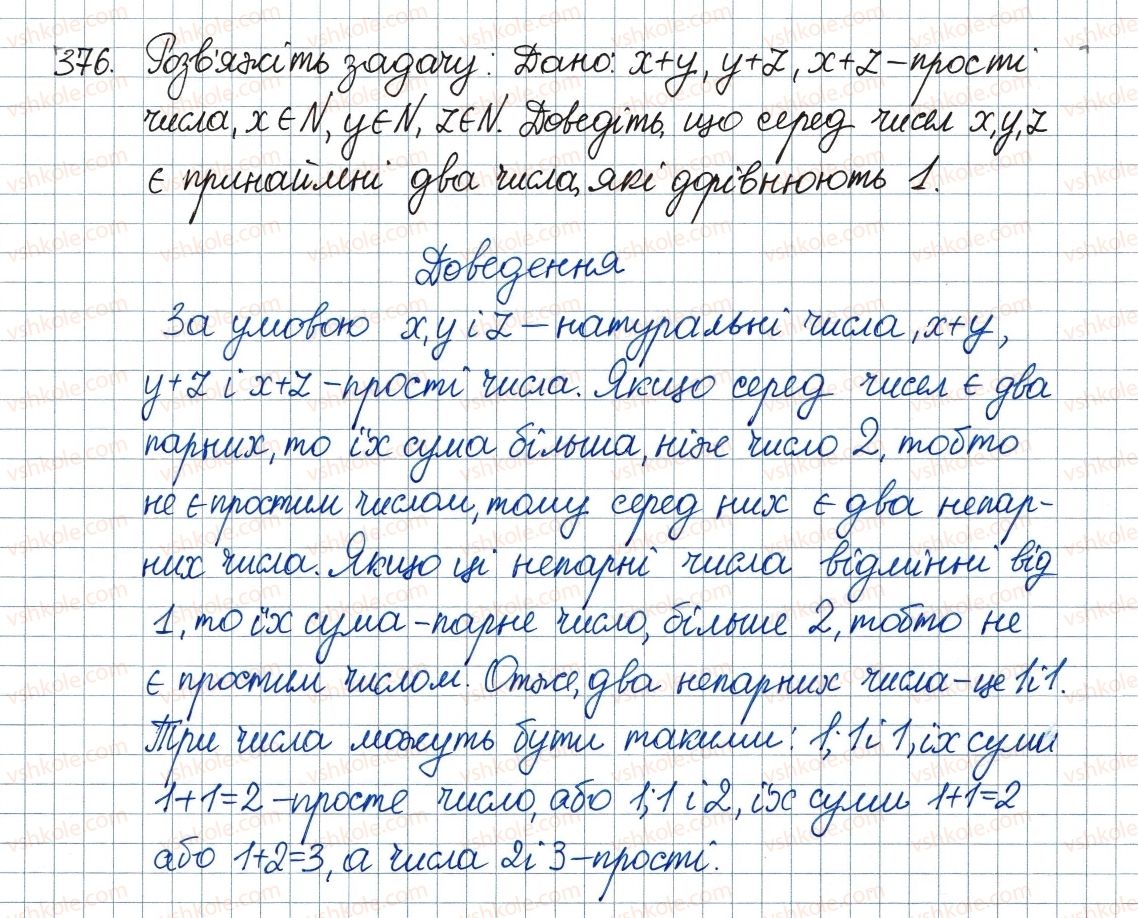 376. Розв'яжіть задачу: Дано: x+y, y+z, x+z – прості
числа, x∈N, y∈N, z∈N. Доведіть, що серед чисел x,y,z
є принаймні два числа, які дорівнюють 1.
Доведення
За умовою x, y і z – натуральні числа, x+y,
y+z і x+z – прості числа. Якщо серед чисел є два
парних, то їх сума більша, ніж число 2, тобто
не є простим числом, тому серед них є два непар-
них числа. Якщо ці непарні числа відмінні від
1, то їх сума – парне число, більше 2, тобто не
є простим числом. Отже, два непарних числа – це 1 і 1.
Три числа можуть бути такими: 1; 1 і 1, їх суми
1+1=2 – просте число, або 1; 1 і 2, їх суми 1+1=2
або 1+2=3, а числа 2 і 3 – прості.